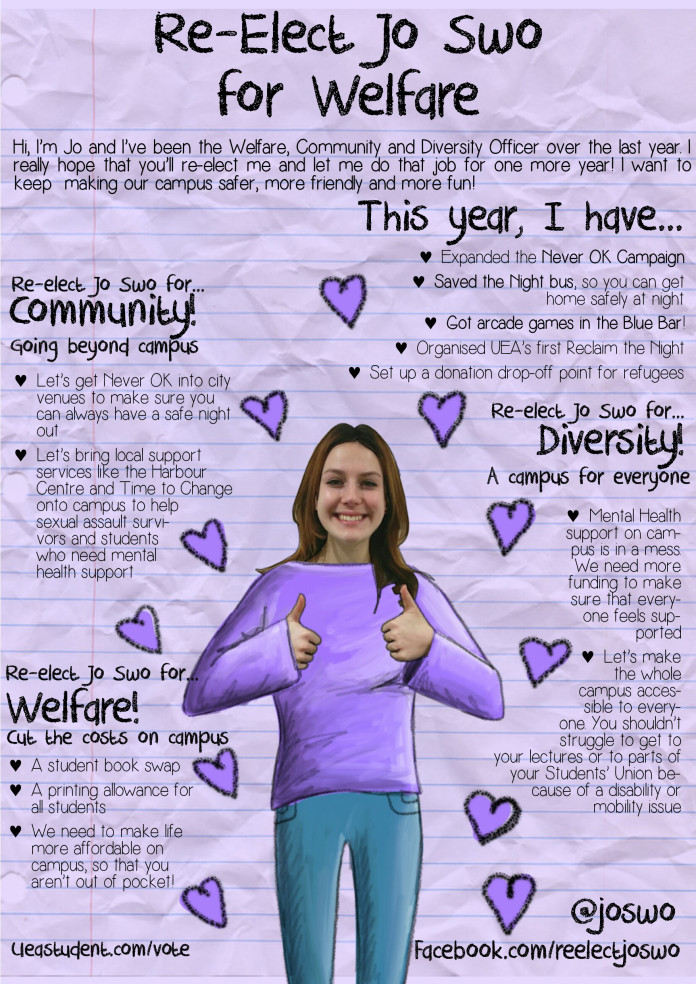 Re-Elect Jo Swo
for Welfare
Hi, I'm Jo and I've been the Welfare, Community and Diversity Officer over the last year. I
really hope that you'll re-elect me and let me do that job for one more year! I want to
keep making our campus safer, more friendly and more fun!
This year, I have...
♥ Expanded the Never OK Campaign
♥ Saved the Night bus, so you can get
home safely at night
♥ Got arcade games in the Blue Bar!
♥ Organised UEA's first Reclaim the Night
♥ Set up a donation drop-off point for refugees
Re-elect Jo Swo for...
Community!
Going beyond campus
♥ Let's get Never OK into city
venues to make sure you
can always have a safe night
out
♥ Let's bring local support
services like the Harbour
Centre and Time to Change
onto campus to help
sexual assault survi-
vors and students
who need mental
health support
Re-elect Jo Swo for...
Diversity!
A campus for everyone
♥ Mental Health
support on cam-
pus is in a mess.
We need more
funding to make
sure that every-
one feels sup-
ported
♥ Let's make
the whole
campus acces-
sible to every-
one You shouldn't
struggle to get to
your lectures or to parts of
your Students' Union be-
cause of a disability or
mobility issue
Re-elect Jo Swo for...
Welfare!
Cut the costs on campus
♥ A student book swap
♥ A printing allowance for
all students
♥ We need to make life
more affordable on
campus, so that you
aren't out of pocket!
@joswo
ueastudent.com/vote
Facebook.com/reelectjoswo